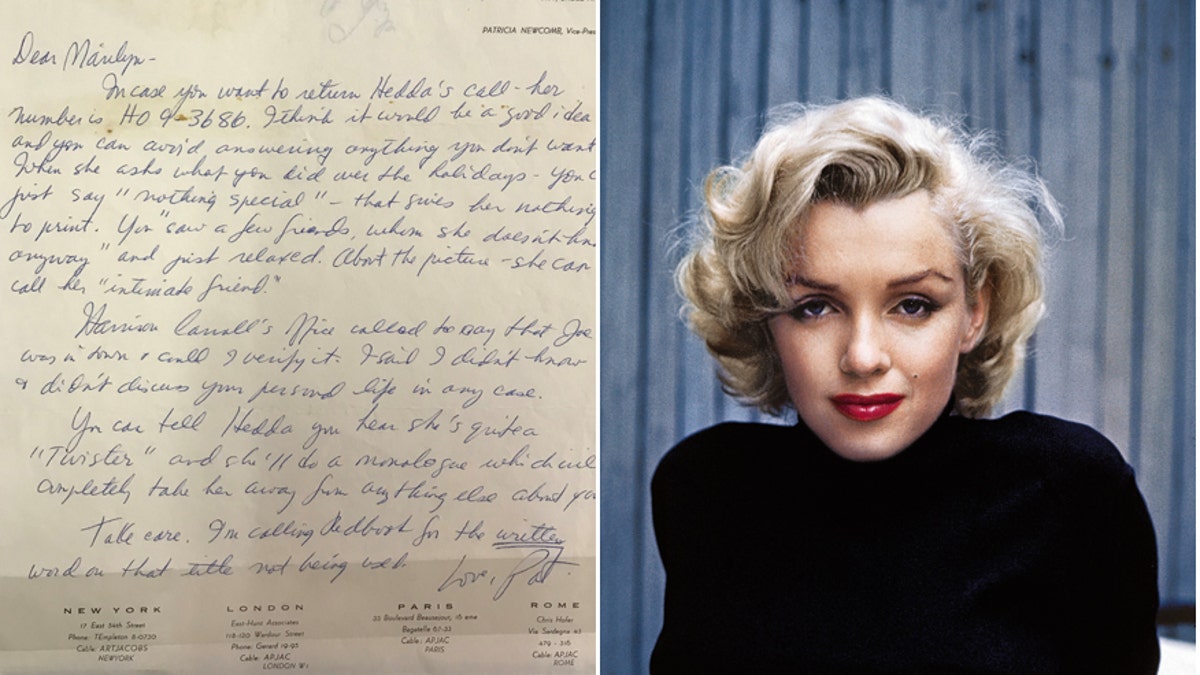 PATRICIA NEWCOMB, Vice-Pres
Dear Marilyn-
In case you want to return Hedda's call - her
number is HO 9-3686. I think it would be a good idea
and you can avoid answering anything you don't want
When she asks what you did over the holidays - you c
just say "nothing special" - that gives her nothing
to print. You "saw a few friends, whom she doesn't kn
anyway" and just relaxed. About the picture - she can
call her "intimate friend."
Harrison Carroll's office called to say that Joe
was in town & could I verify it. I said I didn't know
& didn't discuss your personal life in any case.
You can tell Hedda you hear she's quite a
"Twister" and she'll do a monologue which will
completely take her away from anything else about yo
Take care. I'm calling Redbook for the written
word on that title not being used.
Love, Pat.
NEW YORK
17 East 54th Street
Phone: TEmpleton 8-0730
Cable: ARTJACOBS
NEWYORK
LONDON
East-Hunt Associates
118-120 Wardour Street
Phone: Gerard 19-95
Cable: APJAC
LONDON W1
PARIS
33 Boulevard Beausejour, 16 eme
Bagatelle 67-33
Cable: APJAC
PARIS
ROME
Chris Hofer
Via Sardegna 43
479 - 316
Cable: APJAC
ROME